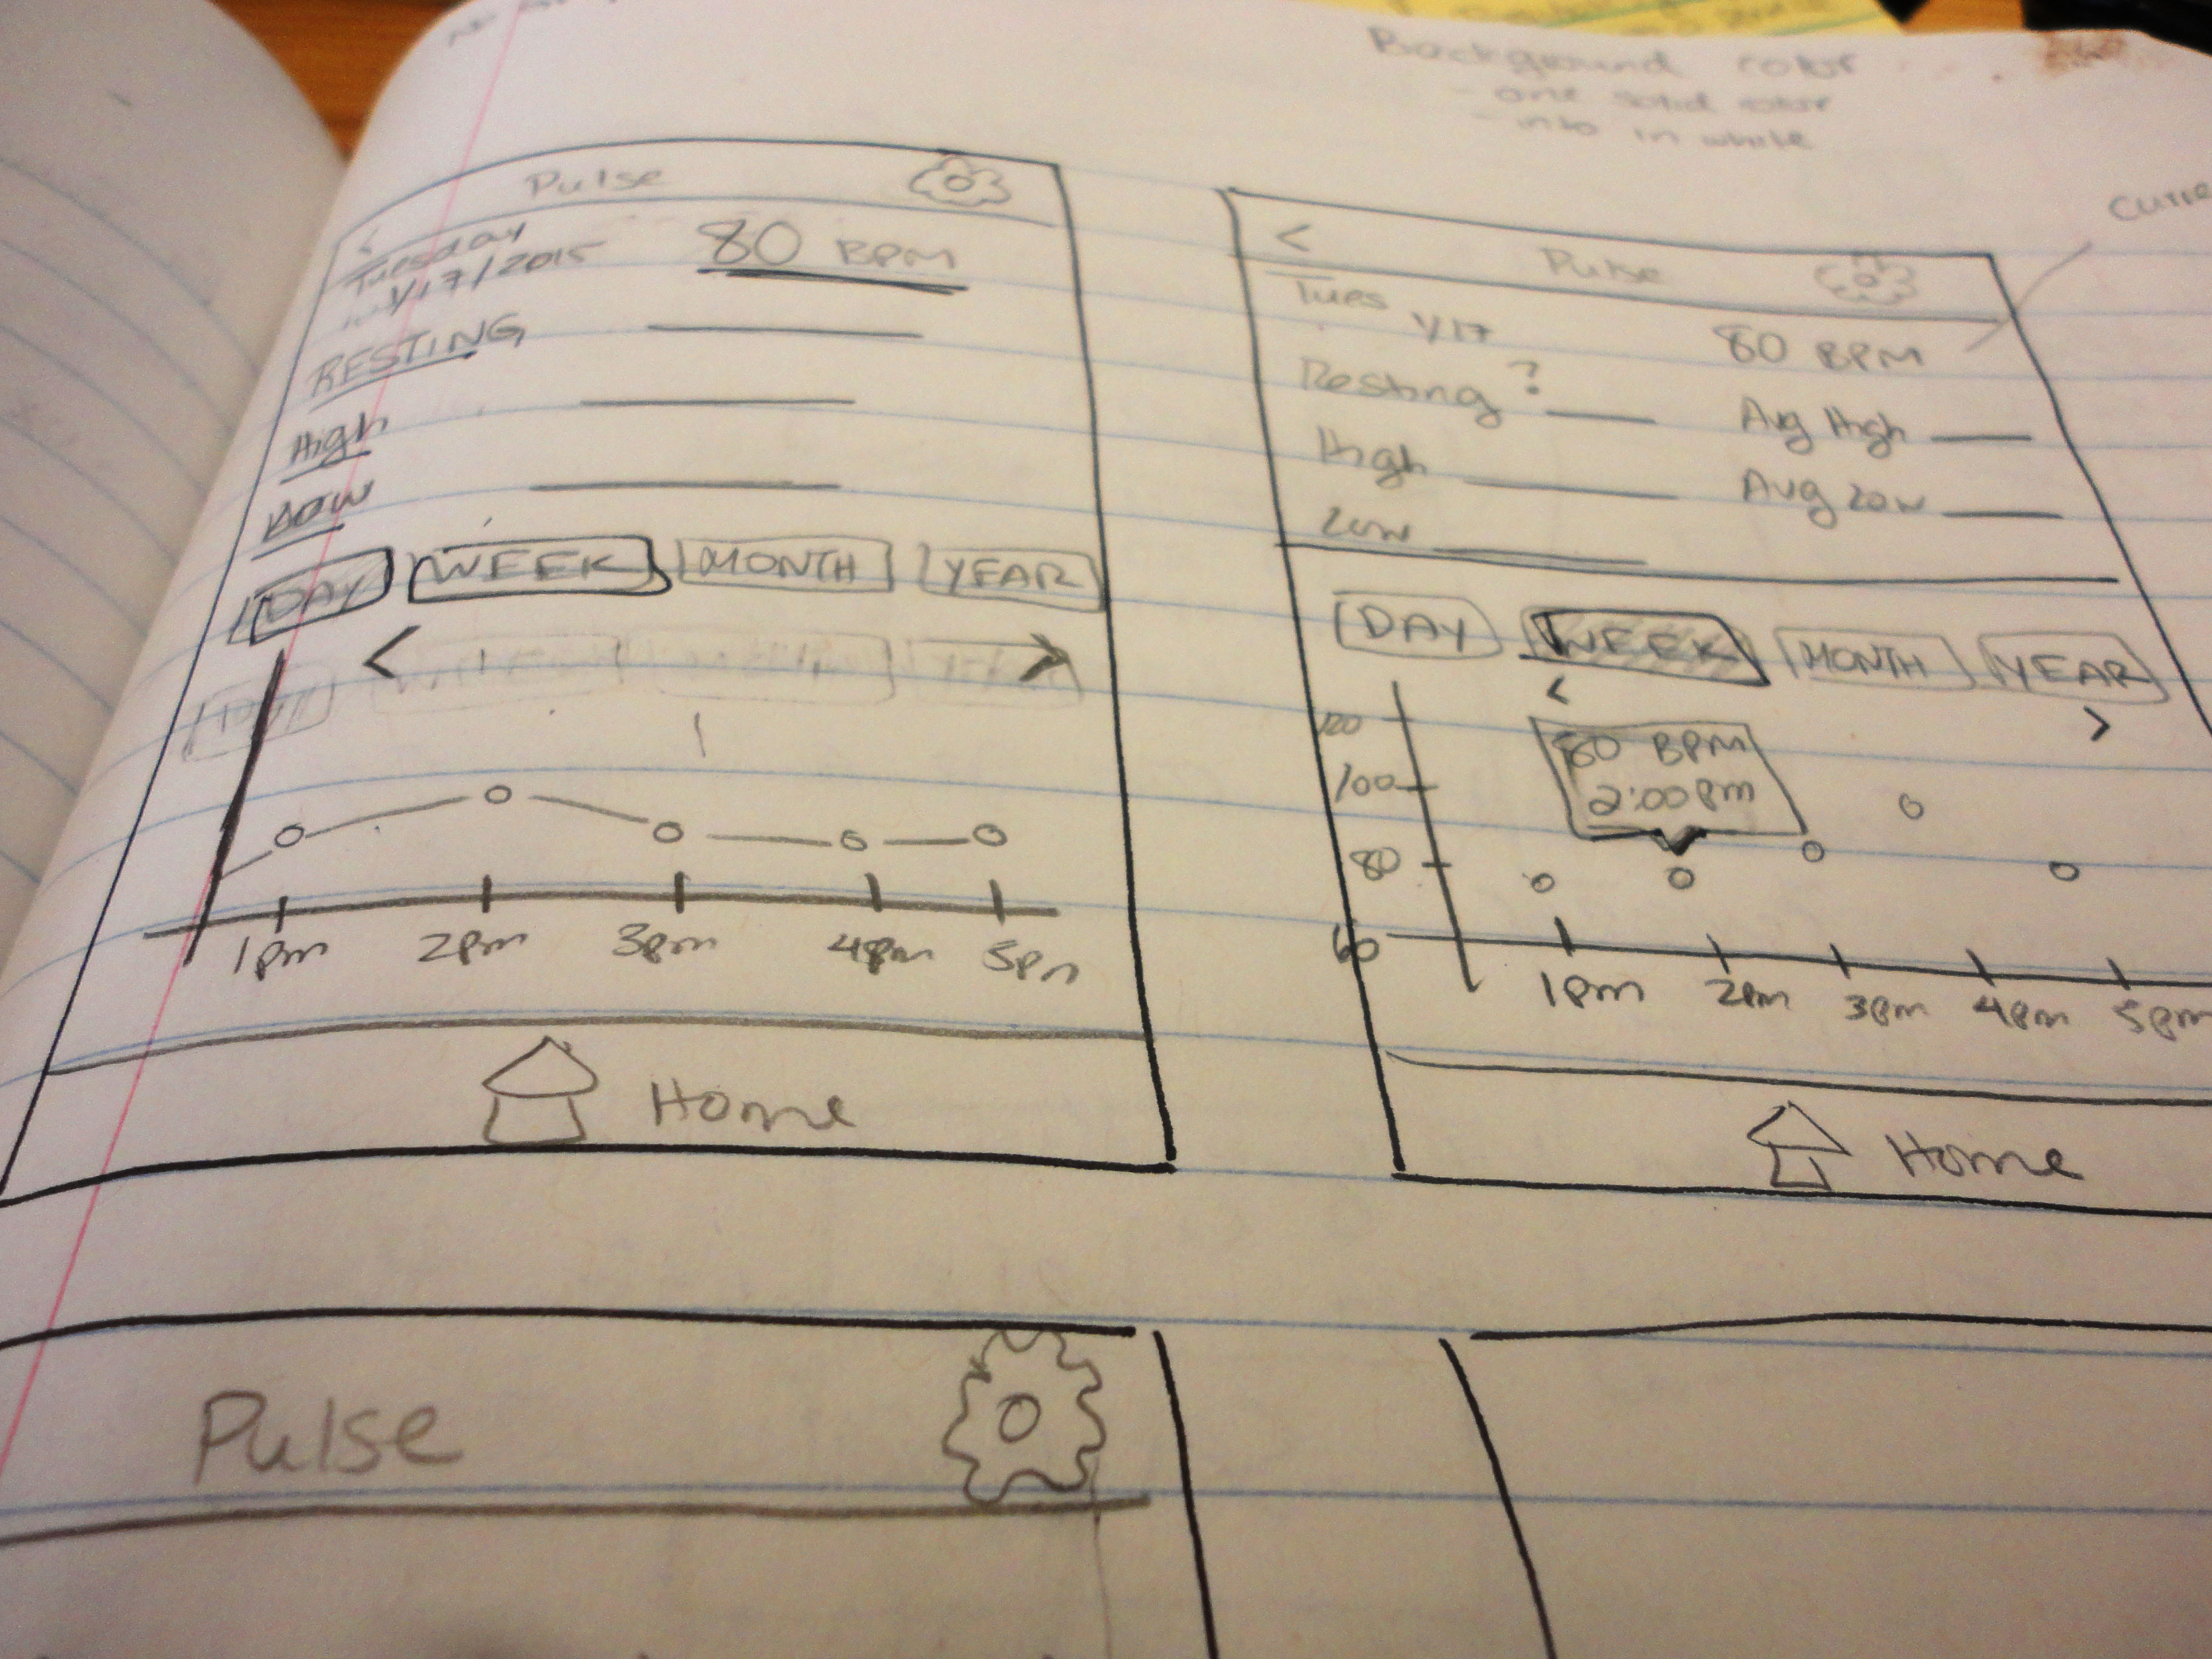 Background color
- one solid color
- info in white
Pulse
<
Tuesday
1/17/2015
80 BPM
RESTING
High
Low
DAY WEEK MONTH YEAR
< >
1pm 2pm 3pm 4pm 5pm
Home
<
Pulse
Tues
1/17
80 BPM
Resting ?
Avg High
High
Avg Low
Low
DAY WEEK MONTH YEAR
<
>
120
80 BPM
2:00pm
100
80
60
1pm 2pm 3pm 4pm 5pm
Home
Pulse